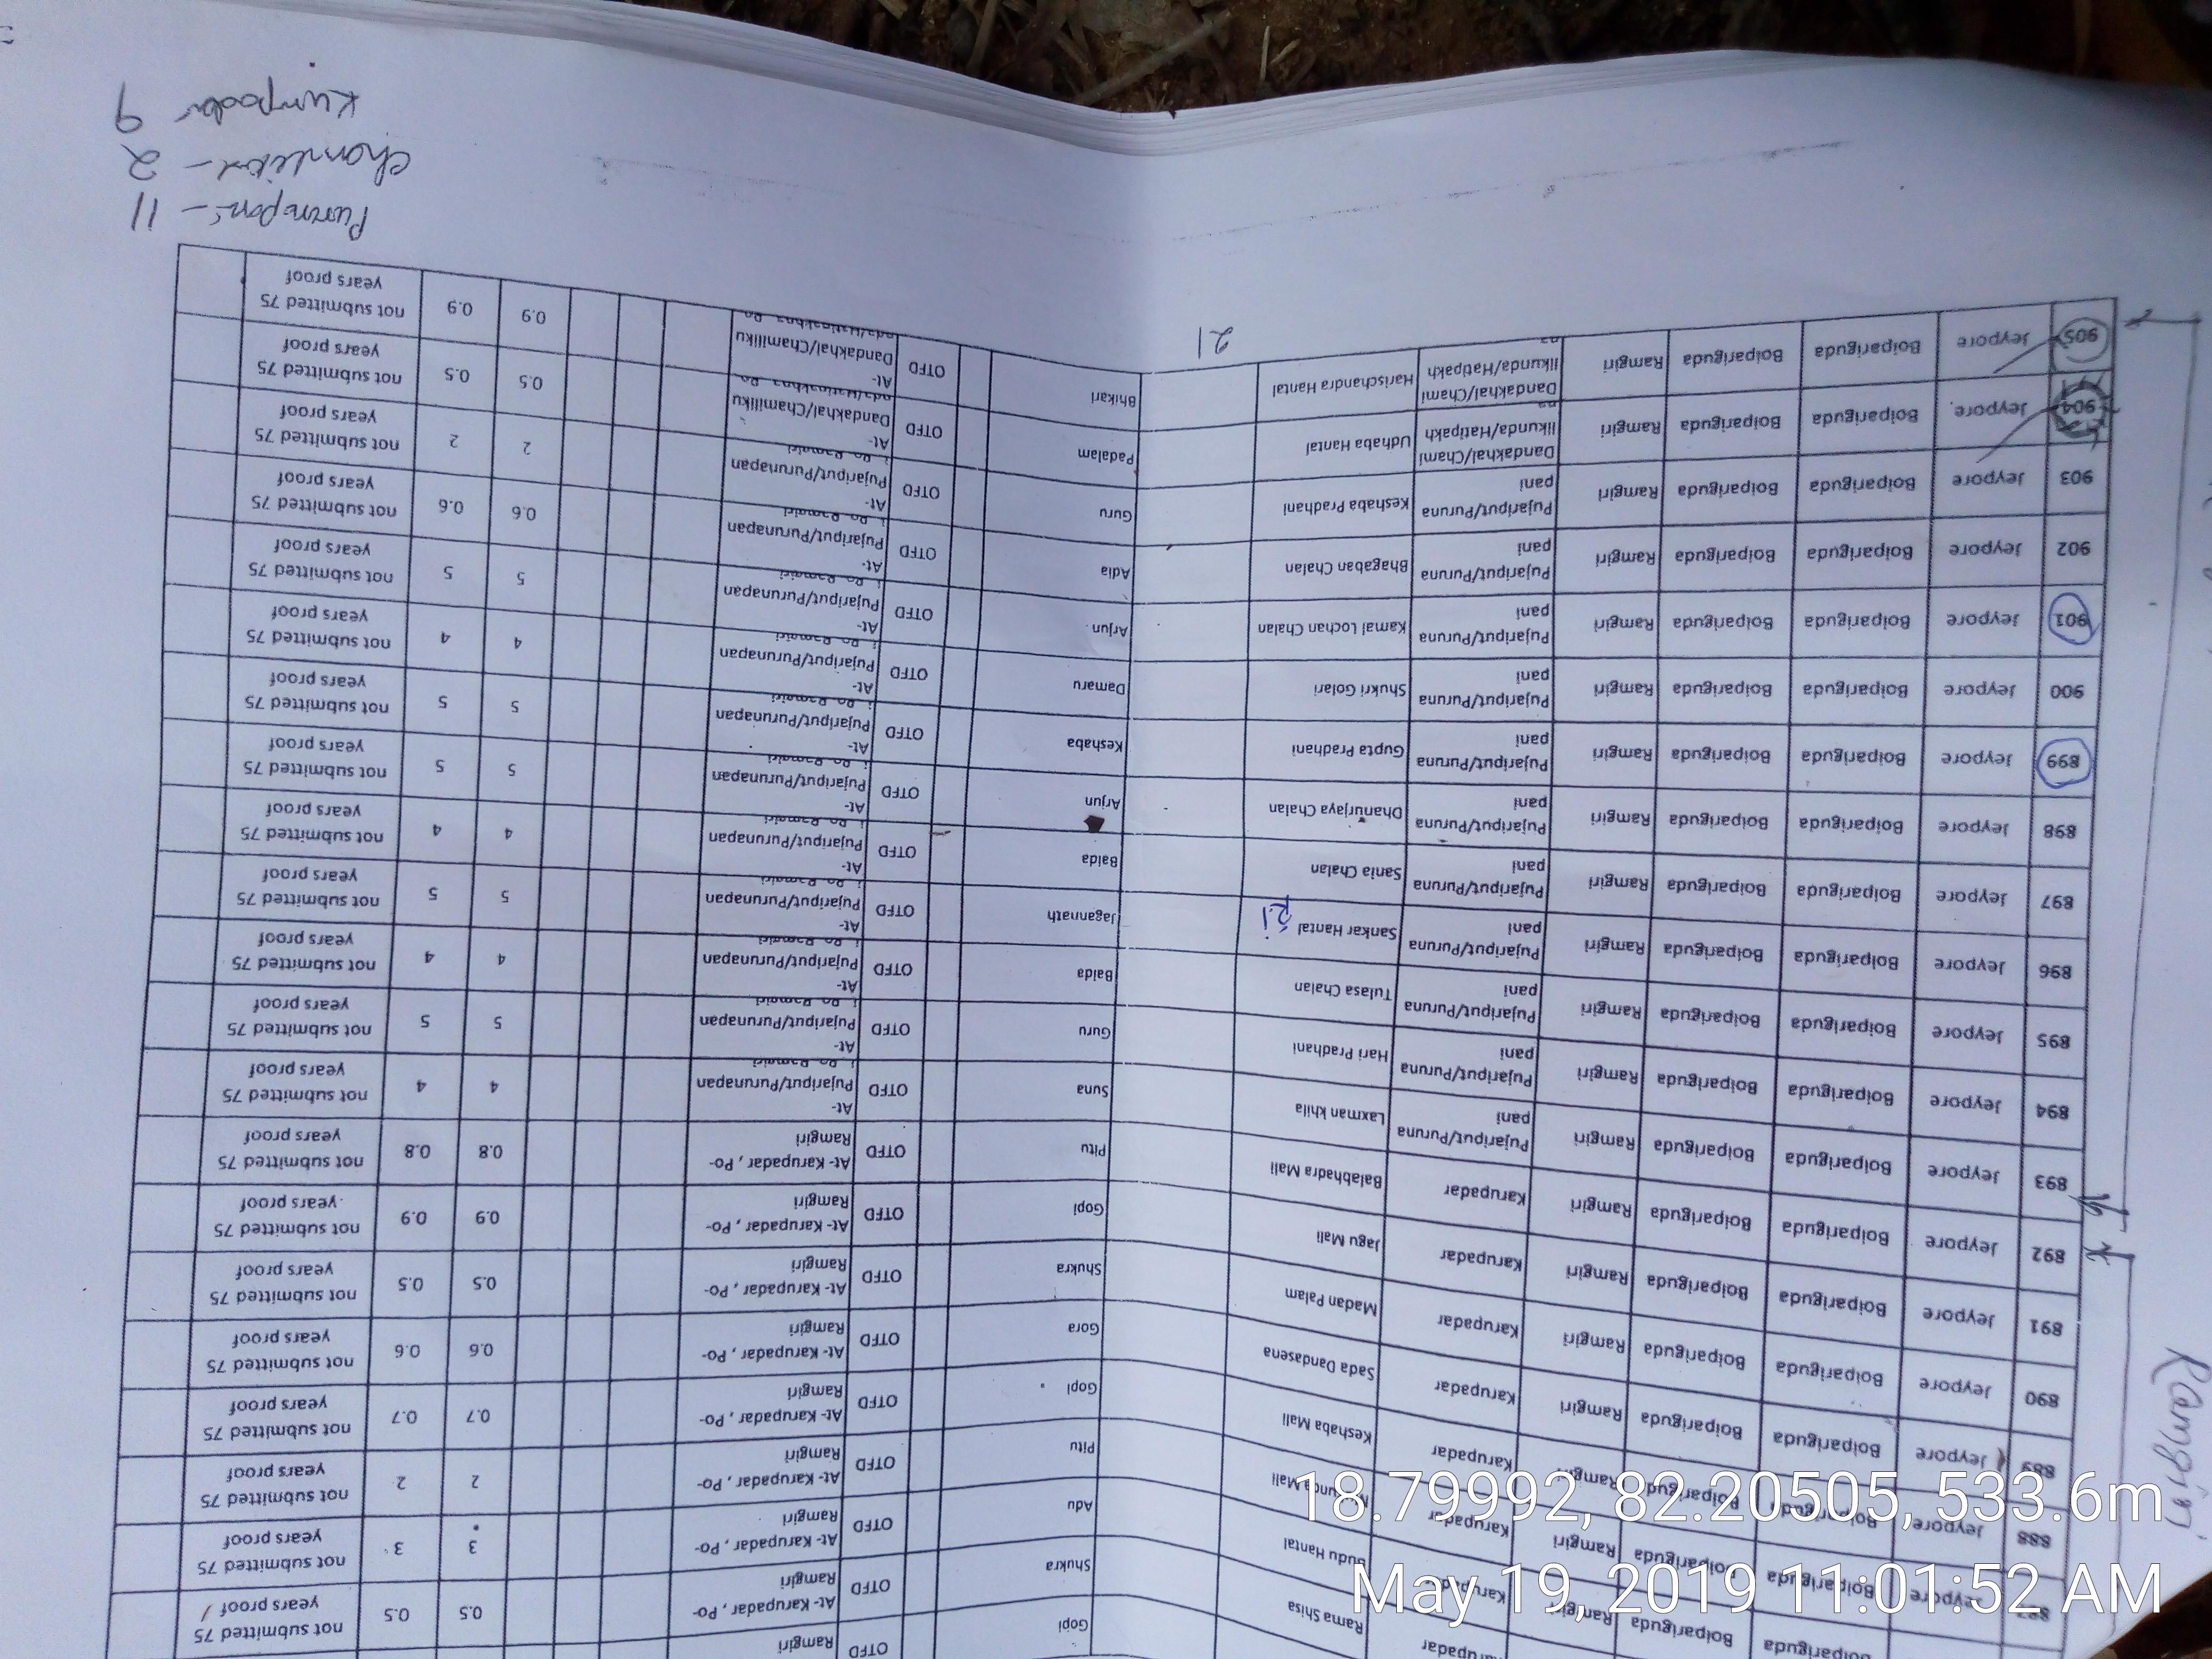 Ramgiri
Gopi OTFD Ramgiri
Boipariguda Rama Shisa Shukra OTFD At- Karupadar , Po- Ramgiri 0.5 0.5 not submitted 75 years proof
Boipariguda Ramgiri Budu Hantal Adu OTFD At- Karupadar , Po- Ramgiri 3 3 not submitted 75 years proof
887 Jeypore Boipariguda Boipariguda Ramgiri Karupadar Mali Pitu OTFD At- Karupadar , Po- Ramgiri 2 2 not submitted 75 years proof
888 Jeypore Boipariguda Boipariguda Ramgiri Karupadar Keshaba Mali Gopi OTFD At- Karupadar , Po- Ramgiri 0.7 0.7 not submitted 75 years proof
889 Jeypore Boipariguda Boipariguda Ramgiri Karupadar Sada Dandasena Gora OTFD At- Karupadar , Po- Ramgiri 0.6 0.6 not submitted 75 years proof
890 Jeypore Boipariguda Boipariguda Ramgiri Karupadar Madan Palam Shukra OTFD At- Karupadar , Po- Ramgiri 0.5 0.5 not submitted 75 years proof
891 Jeypore Boipariguda Boipariguda Ramgiri Karupadar Jagu Mali Gopi OTFD At- Karupadar , Po- Ramgiri 0.9 0.9 not submitted 75 years proof
892 Jeypore Boipariguda Boipariguda Ramgiri Karupadar Balabhadra Mali Pitu OTFD At- Karupadar , Po- Ramgiri 0.8 0.8 not submitted 75 years proof
893 Jeypore Boipariguda Boipariguda Ramgiri Pujariput/Puruna pani Laxman khila Suna OTFD At- Pujariput/Purunapan i, Po Ramgiri 4 4 not submitted 75 years proof
894 Jeypore Boipariguda Boipariguda Ramgiri Pujariput/Puruna pani Hari Pradhani Guru OTFD At- Pujariput/Purunapan i, Po Ramgiri 5 5 not submitted 75 years proof
895 Jeypore Boipariguda Boipariguda Ramgiri Pujariput/Puruna pani Tulasa Chalan Baida OTFD At- Pujariput/Purunapan i, Po Ramgiri 4 4 not submitted 75 years proof
896 Jeypore Boipariguda Boipariguda Ramgiri Pujariput/Puruna pani Sankar Hantal Jagannath OTFD At- Pujariput/Purunapan i, Po Ramgiri 5 5 not submitted 75 years proof
897 Jeypore Boipariguda Boipariguda Ramgiri Pujariput/Puruna pani Sania Chalan Baida OTFD At- Pujariput/Purunapan i, Po Ramgiri 4 4 not submitted 75 years proof
898 Jeypore Boipariguda Boipariguda Ramgiri Pujariput/Puruna pani Dhanurjaya Chalan Arjun OTFD At- Pujariput/Purunapan i, Po Ramgiri 5 5 not submitted 75 years proof
899 Jeypore Boipariguda Boipariguda Ramgiri Pujariput/Puruna pani Gupta Pradhani Keshaba OTFD At- Pujariput/Purunapan i, Po Ramgiri 5 5 not submitted 75 years proof
900 Jeypore Boipariguda Boipariguda Ramgiri Pujariput/Puruna pani Shukri Golari Damaru OTFD At- Pujariput/Purunapan i, Po Ramgiri 4 4 not submitted 75 years proof
901 Jeypore Boipariguda Boipariguda Ramgiri Pujariput/Puruna pani Kamal Lochan Chalan Arjun OTFD At- Pujariput/Purunapan i, Po Ramgiri 5 5 not submitted 75 years proof
902 Jeypore Boipariguda Boipariguda Ramgiri Pujariput/Puruna pani Bhagaban Chalan Adia OTFD At- Pujariput/Purunapan i, Po Ramgiri 0.6 0.6 not submitted 75 years proof
903 Jeypore Boipariguda Boipariguda Ramgiri Pujariput/Puruna pani Keshaba Pradhani Guru OTFD At- Pujariput/Purunapan i, Po Ramgiri 2 2 not submitted 75 years proof
904 Jeypore Boipariguda Boipariguda Ramgiri Dandakhal/Chami likunda/Hatipakh na Udhaba Hantal Padalam OTFD At- Dandakhal/Chamiliku 0.5 0.5 not submitted 75 years proof
905 Jeypore Boipariguda Boipariguda Ramgiri Dandakhal/Chami likunda/Hatipakh na Harischandra Hantal Bhikari OTFD At- Dandakhal/Chamiliku 0.9 0.9 not submitted 75 years proof
21
- 11
- 2
9
18.79992, 82.20505, 533.6m
May 19, 2019 11:01:52 AM